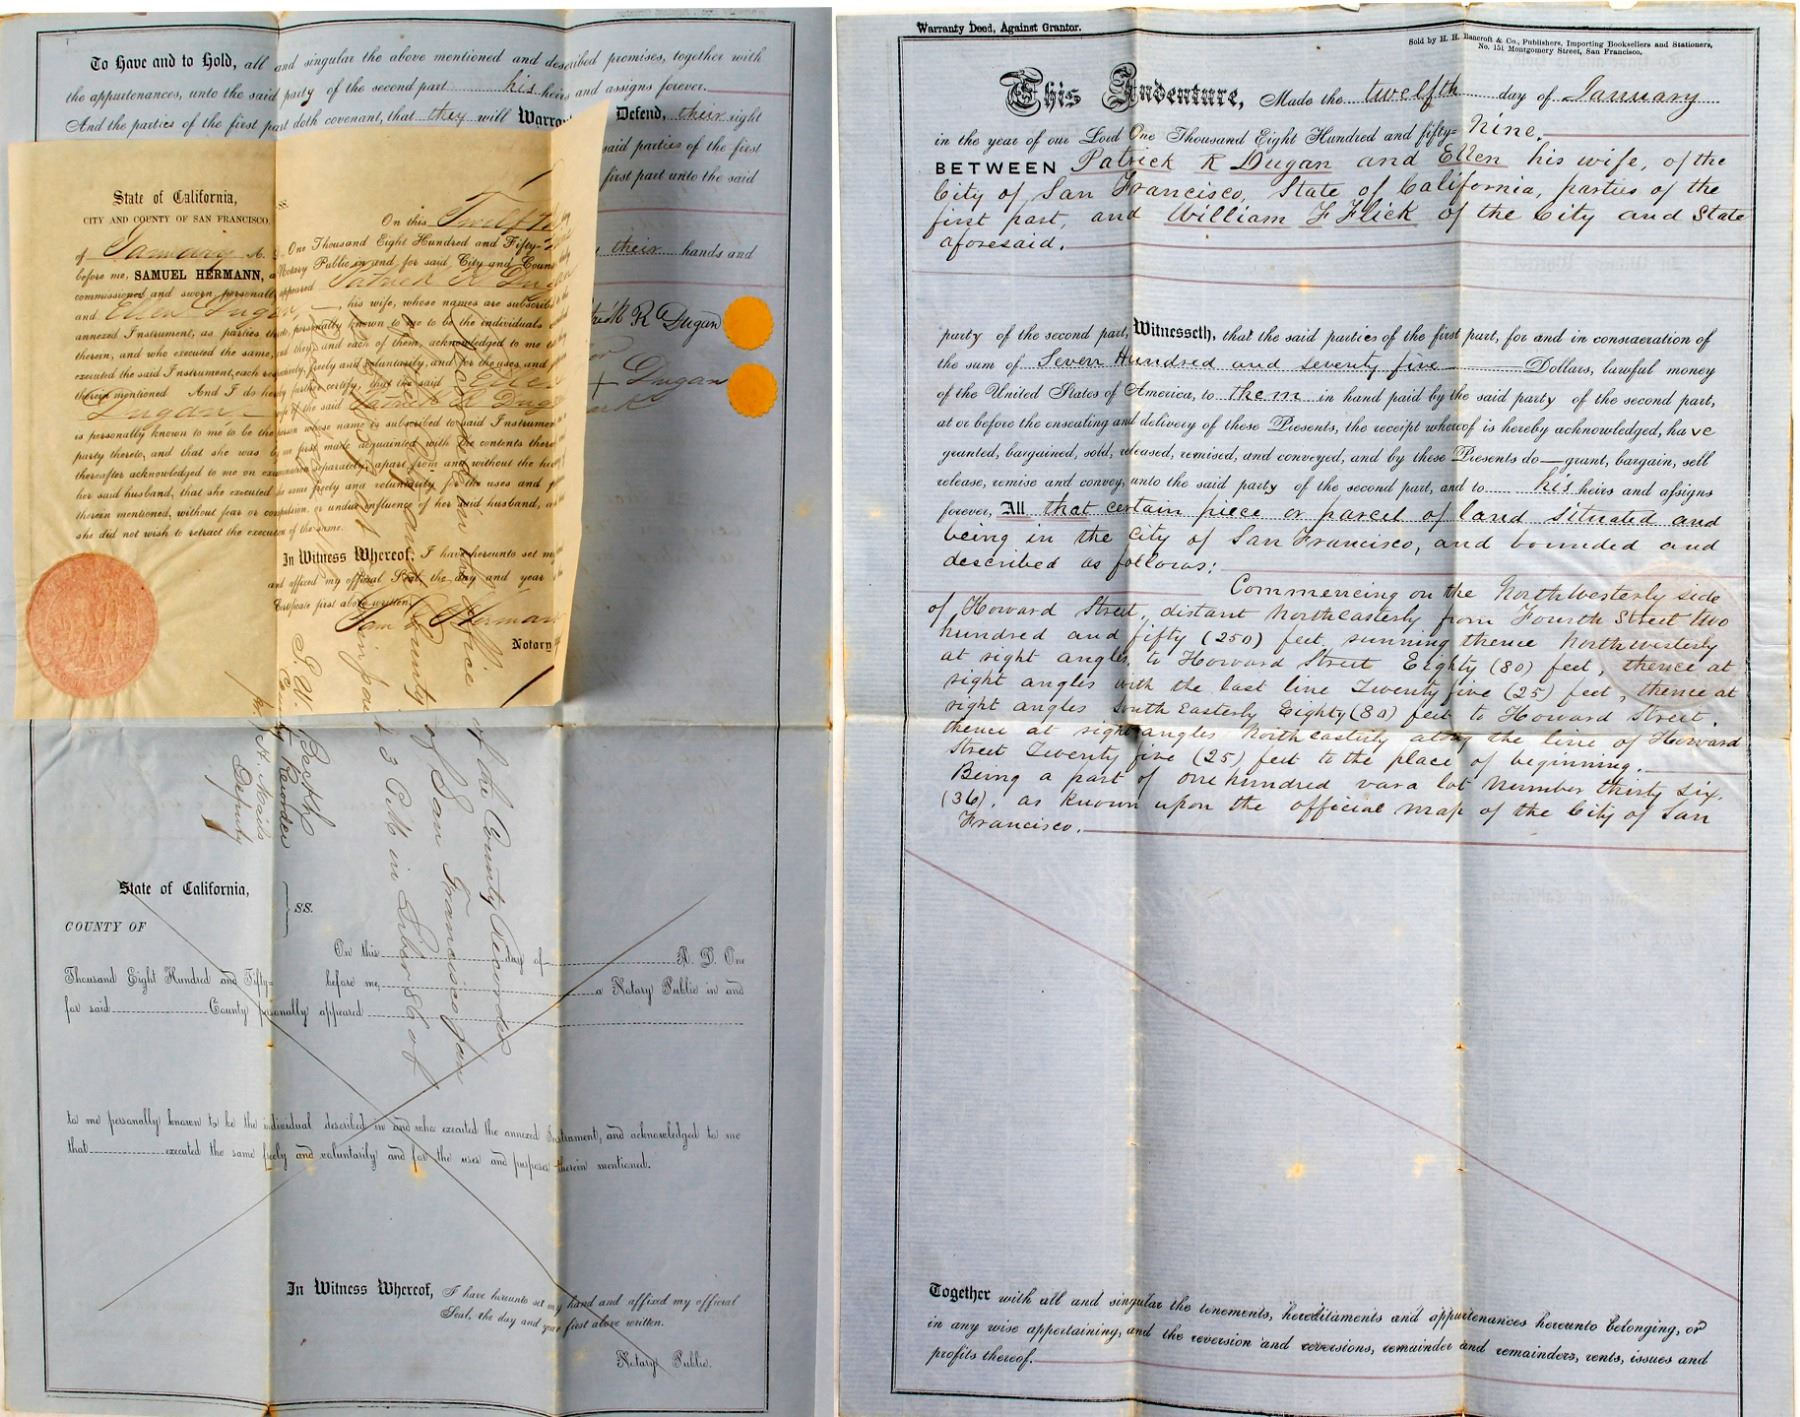 To Have and to Hold, all and singular the above mentioned and described premises, together with
the appurtenances, unto the said party of the second part his heirs and assigns forever.
And the parties of the first part doth covenant, that they will Warra Defend, their right
said parties of the first
first part unto the said
their hands and
rick R Dugan
Dugan
ark
State of California,
CITY AND COUNTY OF SAN FRANCISCO,
ss.
On this Twelfth
of January A. D. One Thousand Eight Hundred and Fifty-
before me, SAMUEL HERMANN, a Notary Public in and for said City and Coun
commissioned and sworn personally appeared Patrick R Dug
and Ellen Dugan, his wife, whose names are subscrib
annexed Instrument, as parties thereto, personally known to me to be the individuals
therein, and who executed the same, and they, and each of them, acknowledged to me
executed the said Instrument, each respectively, freely and voluntarily, and for the uses and
therein mentioned. And I do hereby further certify, that the said Ellen
Dugan wife of the said Patrick R Dug
is personally known to me to be the person whose name is subscribed to said Instrumen
party thereto, and that she was by me first made acquainted with the contents there
thereafter acknowledged to me on examination separately, apart from and without the hea
her said husband, that she executed the same freely and voluntarily for the uses and p
therein mentioned, without fear or compulsion, or undue influence of her said husband, a
she did not wish to retract the execution of the same.
In Witness Whereof, I have hereunto set m
and affixed my official Seal the day and year
Certificate first above written.
Sam Hermann
Notary
Office
of the County Recorder
County of San Francisco Jan
3 P.M. in Liber 86 of
County Recorder
Deputy
State of California,
ss.
COUNTY OF
On this day of A. D. One
Thousand Eight Hundred and Fifty- before me, a Notary Public in and
for said County personally appeared
to me personally known to be the individual described in and who executed the annexed Instrument, and acknowledged to me
that executed the same freely and voluntarily and for the uses and purposes therein mentioned.
In Witness Whereof, I have hereunto set my hand and affixed my official
Seal, the day and year first above written.
Notary Public.
Warranty Deed, Against Grantor.
Sold by H. H. Bancroft & Co., Publishers, Importing Booksellers and Stationers,
No. 151 Montgomery Street, San Francisco.
This Indenture, Made the twelfth day of January
in the year of our Lord One Thousand Eight Hundred and fifty= Nine.
BETWEEN Patrick R Dugan and Ellen his wife, of the
City of San Francisco, State of California, parties of the
first part, and William F Flick of the City and State
aforesaid.
party of the second part, Witnesseth, that the said parties of the first part, for and in consideration of
the sum of Seven Hundred and seventy five Dollars, lawful money
of the United States of America, to them in hand paid by the said party of the second part,
at or before the ensealing and delivery of these Presents, the receipt whereof is hereby acknowledged, have
granted, bargained, sold, released, remised, and conveyed, and by these Presents do grant, bargain, sell
release, remise and convey, unto the said party of the second part, and to his heirs and assigns
forever, All that certain piece or parcel of land situated and
being in the City of San Francisco, and bounded and
described as follows:
Commencing on the Northwesterly side
of Howard Street, distant Northeasterly from Fourth Street two
hundred and fifty (250) feet, running thence Northwesterly
at right angles, to Howard Street Eighty (80) feet, thence at
right angles with the last line Twenty five (25) feet, thence at
right angles South Easterly Eighty (80) feet to Howard Street,
thence at right angles Northeasterly along the line of Howard
Street Twenty five (25) feet to the place of beginning.
Being a part of one hundred vara lot number thirty six.
(36). as known upon the official map of the City of San
Francisco.
Together with all and singular the tenements, hereditaments and appurtenances hereunto belonging, or
in any wise appertaining, and the reversion and reversions, remainder and remainders, rents, issues and
profits thereof.